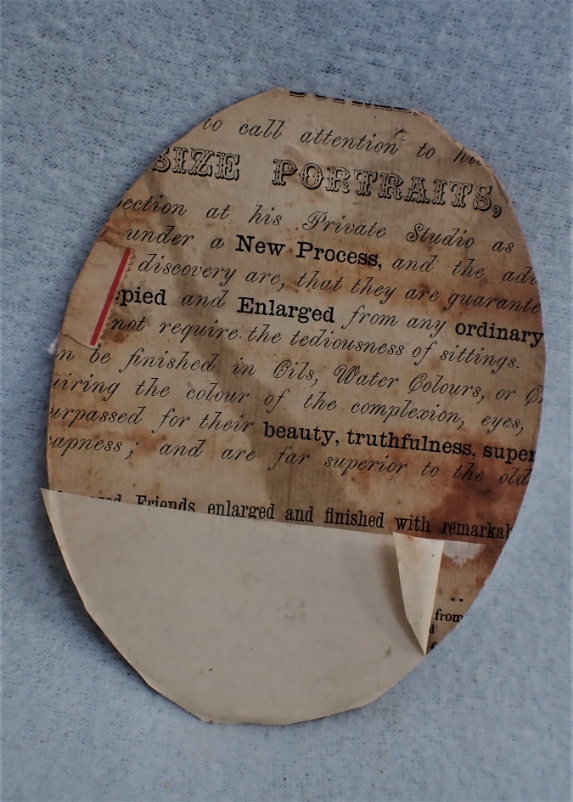 to call attention to
SIZE PORTRAITS,
ection at his Private Studio as
under a New Process, and the adv
discovery are, that they are guarante
pied and Enlarged from any ordinary
not require the tediousness of sittings.
n be finished in Oils, Water Colours, or C
uiring the colour of the complexion, eyes,
urpassed for their beauty, truthfulness, super
eapness; and are far superior to the old
Friends enlarged and finished with remarkab
from